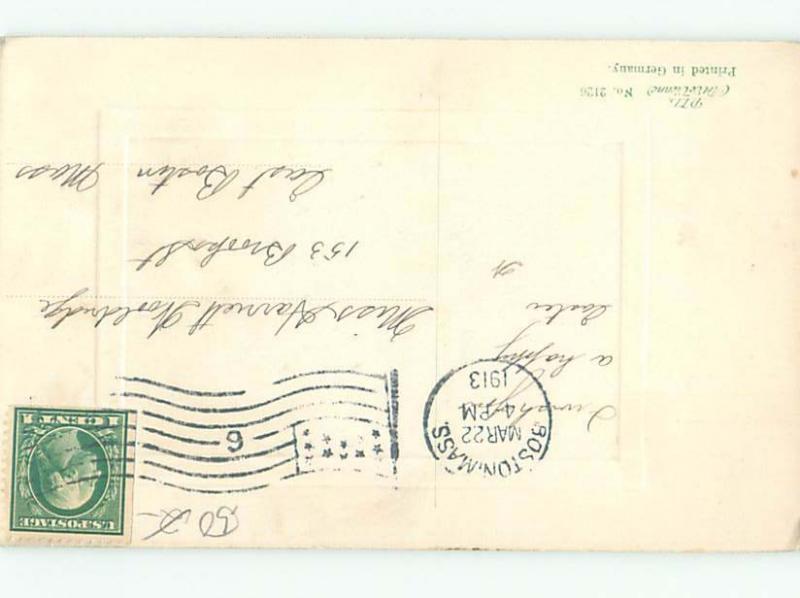 50 ¢
U.S. POSTAGE
1 CENT 1
6
BOSTON, MASS.
MAR 22
4 PM
1913
I wish you
a happy
Easter
Miss Harriett Wooldridge
153 Brooks St
East Boston Mass
No. 2126
Printed in Germany.